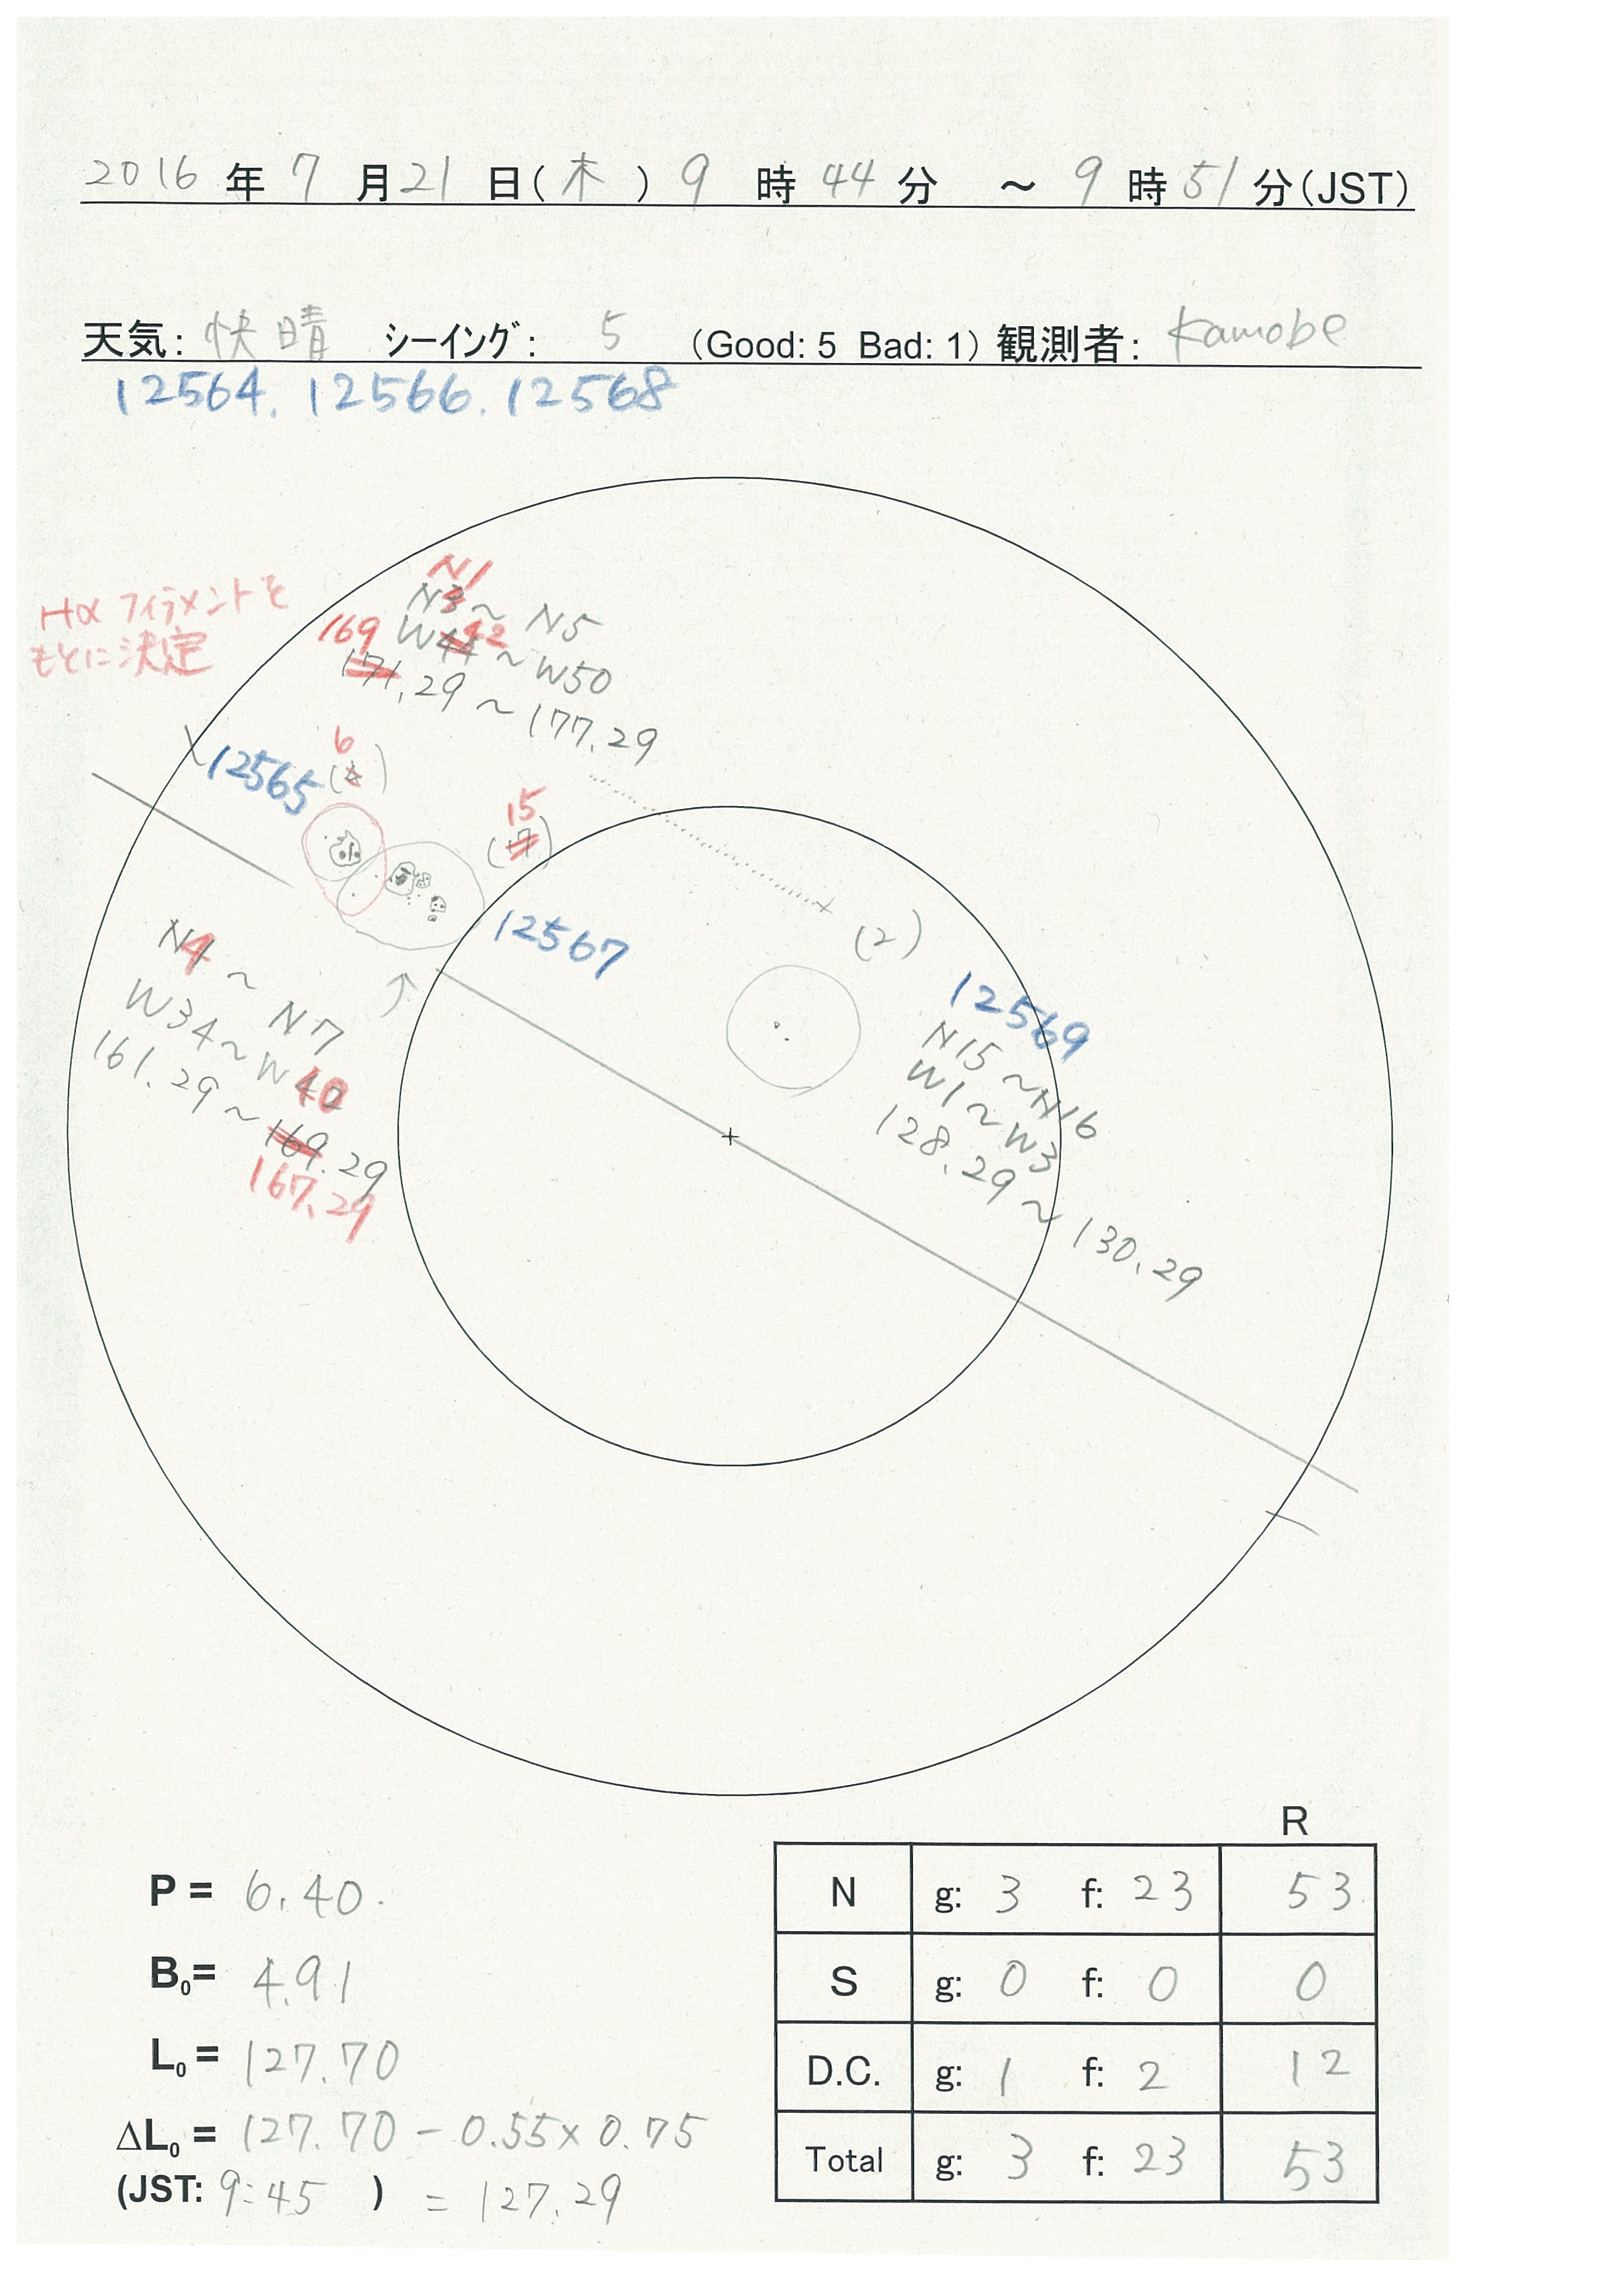 2016 年 7 月 21 日(木) 9 時 44 分 ～ 9 時 51 分(JST)
天気: 快晴 シーイング: 5 (Good: 5 Bad: 1) 観測者: Kamobe
12564. 12566. 12568
N1
N3～N5
169 W44 42～W50
171.29～177.29
Hα フィラメントを
もとに決定
12565
6
( )
15
(17)
12567
(2)
12569
N15～N16
W1～W3
128.29～130.29
N4～N7
W34～W40
161.29～169.29
167.29
R
N g: 3 f: 23 53
S g: 0 f: 0 0
D.C. g: 1 f: 2 12
Total g: 3 f: 23 53
P = 6.40.
B0= 4.91
L0 = 127.70
ΔL0 = 127.70 - 0.55 × 0.75
(JST: 9:45 ) = 127.29